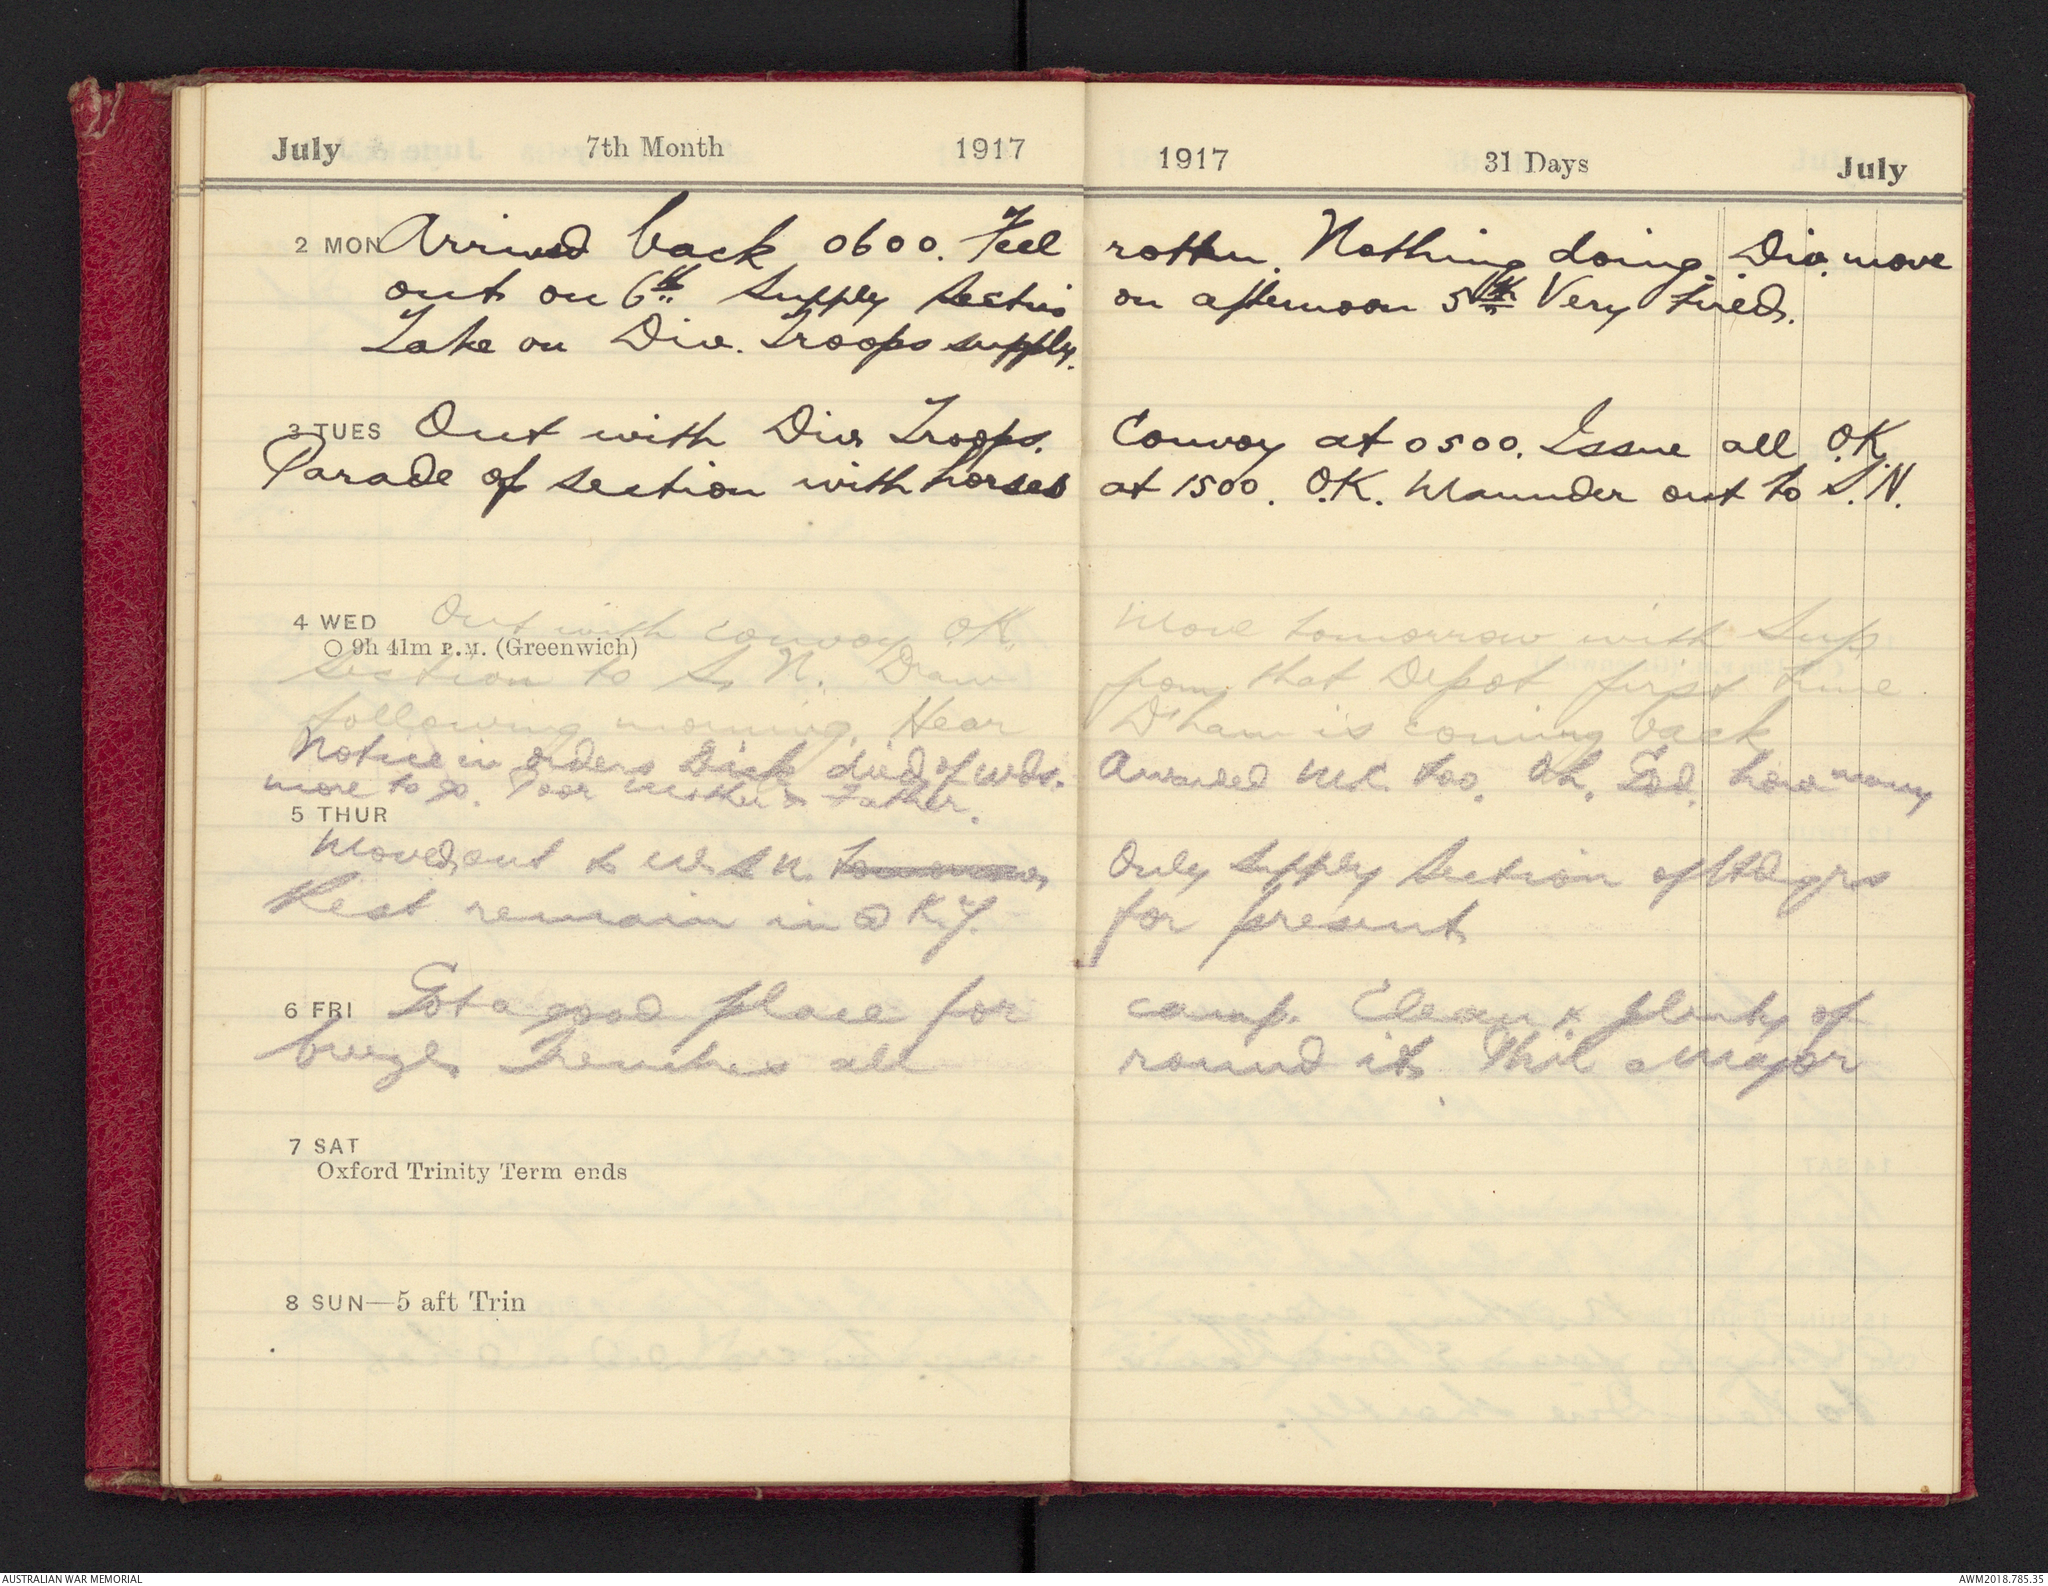 July 7th Month 1917
1917 31 Days July
2 MON Arrived back 0600. Feel rotten. Nothing doing. Div. move
out on 6th Supply Section on afternoon 5th Very tired.
Take on Div. Troops supply.
3 TUES Out with Div Troops. Convoy at 0500. Issue all O.K.
Parade of section with horses at 1500. O.K. Maunder out to S.N.
4 WED Out with convoy O.K. Move tomorrow with Sup
9h 41m P.M. (Greenwich)
Section to S. N. Draw from that Depot first time
following morning. Hear D'ham is coming back
Notice in orders Dick died of wds. Awarded M.C. too. Oh. God. how many
more to go. Poor Mother & Father.
5 THUR
Moved out to S N. tomorrow Only supply Section of Hdqrs
Rest remain in for present
6 FRI Got a good place for camp. Clean & plenty of
Trenches all round it. Major
7 SAT
Oxford Trinity Term ends
8 SUN—5 aft Trin
AUSTRALIAN WAR MEMORIAL
AWM2018.785.35